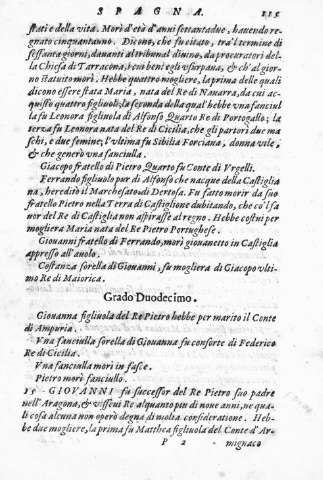 SPAGNA. 115
stati e della vita. Morì d'età d'anni settantadue, havendo re-
gnato cinquantanno. Dicono, che fu citato, tra'l termine di
sessanta giorni, davanti al tribunal divino, da procuratori del-
la Chiesa di Tarracona, i cui beni egli usurpava, & ch'al gior-
no statuito morì. Hebbe quattro mogliere, la prima delle quali
dicono essere stata Maria, nata del Re di Navarra, da cui ac-
quistò quattro figliuoli; la seconda della qual'hebbe una fanciul
la fu Leonora figliuola di Alfonso Quarto Re di Portogallo; la
terza fu Leonora nata del Re di Cicilia, che gli partorì due ma
schi, e due femine; l'ultima fu Sibilia Forciana, donna vile,
& che generò una fanciulla.
Giacopo fratello di Pietro Quarto fu Conte di Urgelli.
Ferrando figliuolo pur di Alfonso che nacque della Castiglia
na, hereditò il Marchesato di Dertosa. Fu fatto morir da suo
fratello Pietro nella Terra di Castiglione dubitando, che co'l fa
vor del Re di Castiglia non aspirasse al regno. Hebbe costui per
mogliera Maria nata del Re Pietro Portughese.
Giovanni fratello di Ferrando, morì giovanetto in Castiglia
appresso all'avolo.
Costanza sorella di Giovanni, fu mogliera di Giacopo ulti-
mo Re di Maiorica.
Grado Duodecimo.
Giovanna figliuola del Re Pietro hebbe per marito il Conte
di Ampuria.
Una fanciulla sorella di Giovanna fu consorte di Federico
Re di Cicilia.
Una fanciulla morì in fasce.
Pietro morì fanciullo.
GIOVANNI fu successor del Re Pietro suo padre
nell'Aragona, & vissevi Re alquanto piu di nove anni, ne qua-
li cosa alcuna non operò degna di molta consideratione. Heb-
be due mogliere, la prima fu Matthea figliuola del Conte d'Ar-
P 2 mignaco